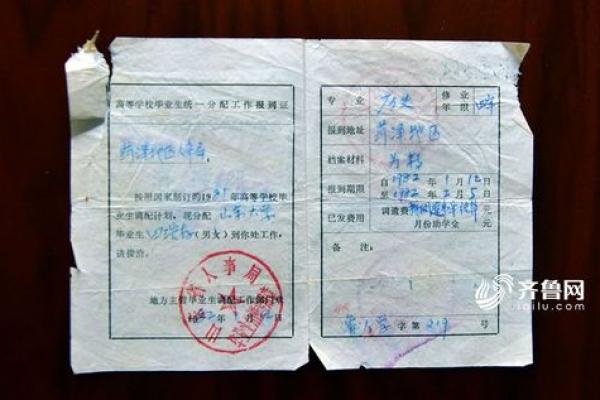 高等学校毕业生统一分配工作报到证
菏泽地区人事局
按照国家制订的1981年高等学校毕
业生调配计划，现分配 山东大学
毕业生 (男女)到你处工作，
请接洽。
地方主管毕业生调配工作部门章
1982年1月12日
山东省人事局
专业 历史 修业年限 四年
报到地址 菏泽地区
档案材料
报到期限 自1982年1月12日
至1982年2月5日
已发费用 调遣费 元
月份助学金 元
备注：
字第219号
齐鲁网
iqilu.com